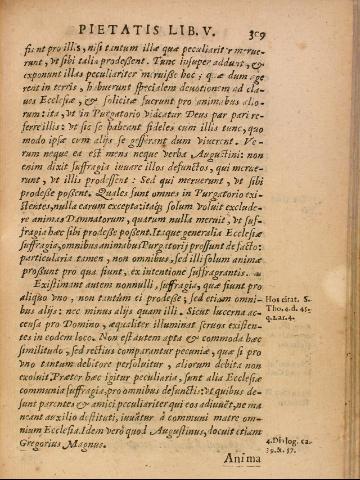 PIETATIS LIB. V. 309
fiunt pro illis, nisi tantum illæ quæ peculiariter merue-
runt, vt sibi talia prodessent. Tunc insuper addunt, &
exponunt illas peculiariter meruisse hoc; quæ dum age
rent in terris, habuerunt specialem deuotionem ad cla-
ues Ecclesiæ, & solicitæ fuerunt pro animabus alio-
rum: ita, vt in Purgatorio videatur Deus par pari re-
ferre illis: vt sic se habeant fideles cum illis tunc, quo
modo ipsæ cum alijs se gesserant dum viuerent. Ve-
rum neque ea est mens neque verba Augustini: non
enim dixit suffragia iuuare illos defunctos, qui merue-
runt, vt illis prodessent: Sed qui meruerunt, vt sibi
prodesse possent. Quales sunt omnes in Purgatorio exi-
stentes, nulla earum excepta: itaq; solum voluit exclude-
re animas Damnatorum, quarum nulla meruit, vt suf-
fragia hæc sibi prodesse possent. Itaque generalia Ecclesiæ
suffragia, omnibus animabus Purgatorij prosunt de facto:
particularia tamen, non omnibus, sed illi solum animæ
prosunt pro qua fiunt, ex intentione suffragantis.
Existimant autem nonnulli, suffragia, quæ fiunt pro
aliquo vno, non tantum ei prodesse, sed etiam omni-
bus alijs: nec minus alijs quam illi. Sicut lucerna ac-
censa pro Domino, æqualiter illuminat seruos existen-
tes in eodem loco. Non est autem apta & commoda hæc
similitudo, sed rectius comparantur pecuniæ, quæ si pro
vno tantum debitore persoluitur, aliorum debita non
exoluit. Præter hæc igitur peculiaria, sunt alia Ecclesiæ
communia suffragia, pro omnibus defunctis: vt quibus de-
sunt parentes & amici peculiariter qui eos adiuuẽt, ne ma
neant auxilio destituti, iuuãtur à communi matre om-
nium Ecclesia. Idem verò quod Augustinus, docuit etiam
Gregorius Magnus.
Anima
Hos citat. S.
Tho. 4. d. 45.
q. 2. ar. 4.
4. Dialog. ca.
39. & 57.